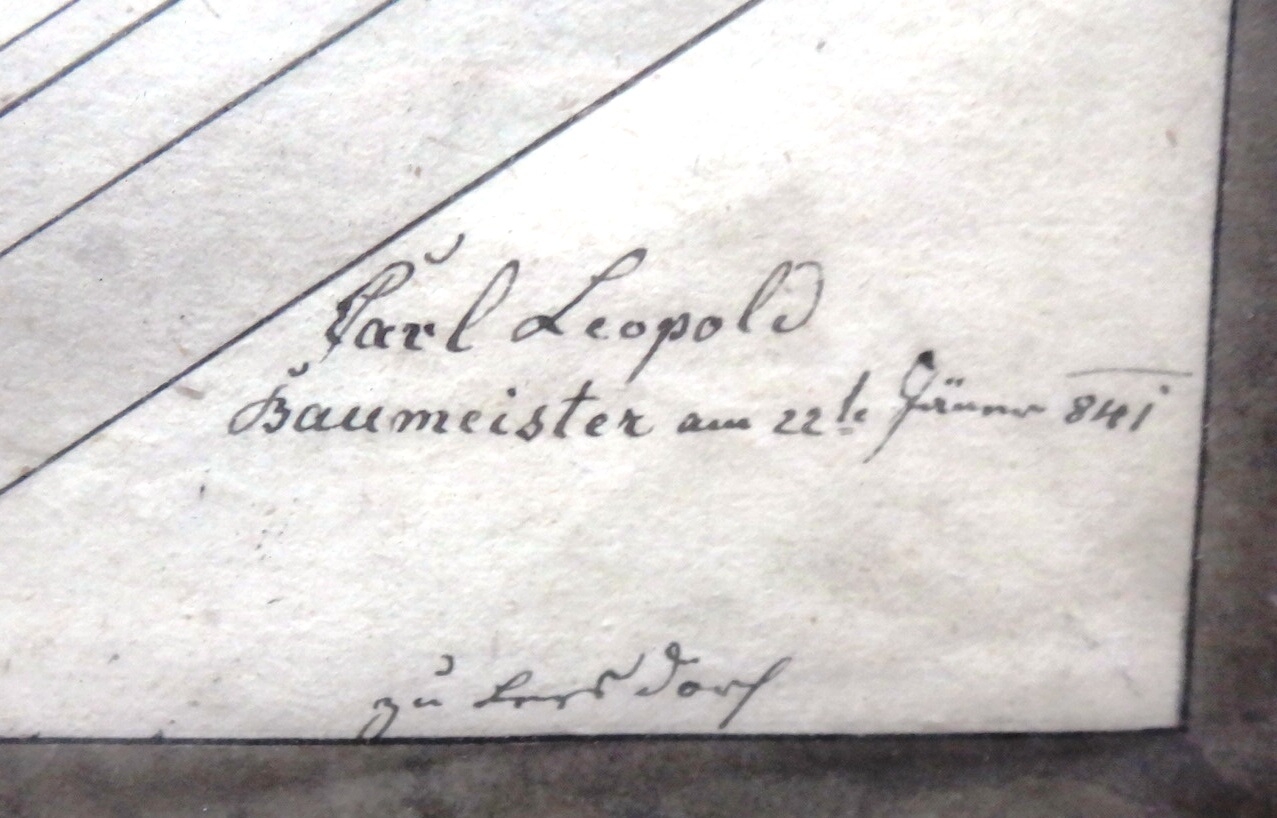 Carl Leopold
Baumeister am 22te Jänner 841
zu dorf